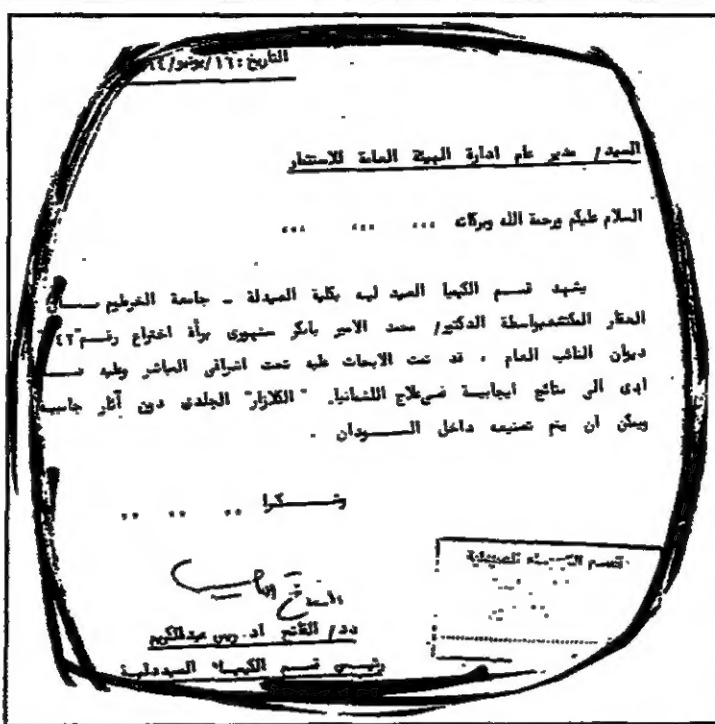 التاريخ : ١٦/يونيو/٩٤
السيد/ مدير عام ادارة الهيئة العامة للاستثمار
السلام عليكم ورحمة الله وبركاته ... ... ...
يشهد قسم الكيميا الصيدليه بكلية الصيدلة - جامعة الخرطوم بأن
العقار المكتشف بواسطة الدكتور/ محمد الامير بابكر سنهورى برأة اختراع رقم "٤٢"
ديوان النائب العام ، قد تمت الابحاث عليه تحت اشرافى المباشر وعليه
ادى الى نتائج ايجابية فى علاج اللشمانيا "الكلازار" الجلدى دون آثار جانبيه
ويمكن ان يتم تصنيعه داخل الســودان .
وشــكرا .. .. ..
قسم الصيدلية
دد/ الفاتح عبدالكريم
رئيس قسم الكيمياء الصيدلية